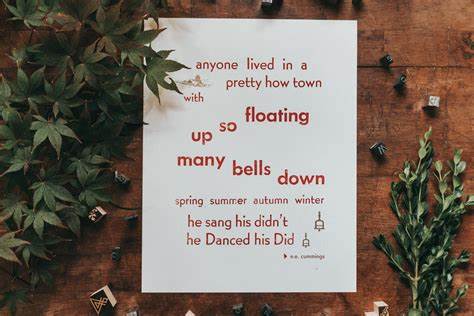 anyone lived in a
pretty how town
with
up so floating
many bells down
spring summer autumn winter
he sang his didn't
he Danced his Did
e.e. cummings